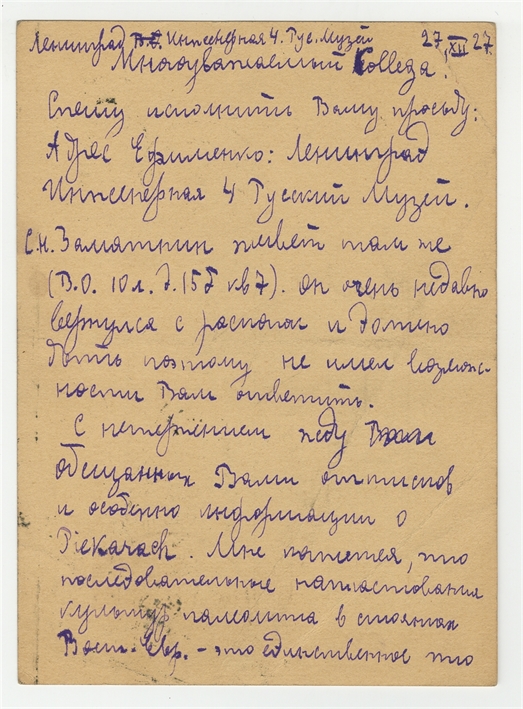 Ленинград В.О. Инженерная 4. Рус. Музей 27 XII 27.
Многоуважаемый Collega!
Спешу исполнить Вашу просьбу:
Адрес Ефименко: Ленинград
Инженерная 4 Русский Музей.
С.Н. Замятнин живет там же
(В.О. 10 л. д. 15б кв 7). он очень недавно
вернулся с раскопок и должно
быть поэтому не имел возмож-
ности Вам ответить.
С нетерпением жду
обещанных Вами оттисков
и особенно информации о
Piekarach. Мне кажется, что
последовательные напластования
культур палеолита в стоянках
Вост. Евр. - это единственное что